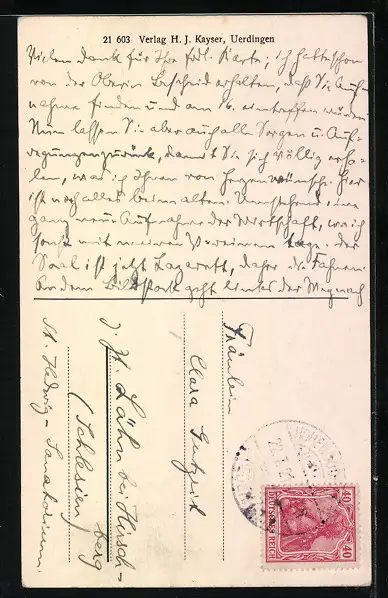 21 603 Verlag H. J. Kayser, Uerdingen
Vielen Dank für Ihre frdl. Karte; ich hatte schon
von der Oberin Bescheid erhalten, daß Sie Auf-
nahme finden und am 16. eintreffen würden.
Nun lassen Sie aber auch alle Sorgen u. Auf-
regungen zurück, damit Sie sich völlig erho-
len, was ich Ihnen von Herzen wünsche. Hier
ist noch alles beim alten.
ganz Aufnahme der Wirtschaft, wo ich
sonst mit meinen Vereinen tage. Der
Saal ist jetzt Lazarett, daher die Fahnen.
Vor dem Bildstock geht links der Weg nach
Fräulein
Clara
z. Zt. Lähn bei Hirsch-
berg
(Schlesien)
St. Hedwig-Sanatorium.
40 40
DEUTSCHES REICH